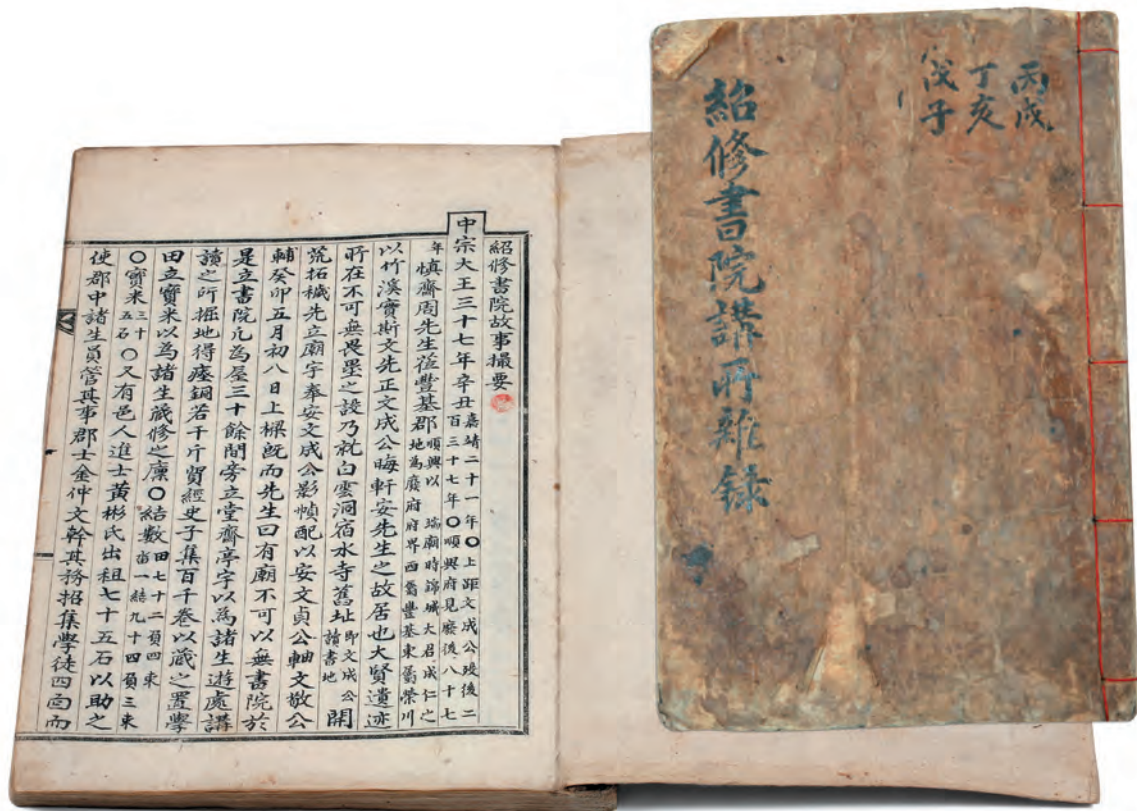 丙戌
丁亥
戊子
紹修書院講所雜錄
紹修書院故事撮要
中宗大王三十七年辛丑嘉靖二十一年〇上距文成公歿後二
百三十七年〇順興府見廢後八十七
年愼齋周先生莅豐基郡順興以 端廟時錦城大君成仁之
地為廢府府界西屬豐基東屬榮川
以竹溪實斯文先正文成公晦軒安先生之故居也大賢遺迹
所在不可無畏壘之設乃就白雲洞宿水寺舊址即文成公
讀書地開
荒拓穢先立廟宇奉安文成公影幀配以安文貞公軸文敬公
輔癸卯五月初八日上樑旣而先生曰有廟不可以無書院於
是立書院凡為屋三十餘間旁立堂齋亭宇以為諸生遊處講
讀之所掘地得瘞銅若干斤貿經史子集百千卷以藏之置學
田立寶米以為諸生藏修之廩〇結數田七十二負四束
畓一結九十四負三束
〇寶米三十
五石〇又有邑人進士黃彬氏出租七十五石以助之
使郡中諸生員管其事郡士金仲文幹其務招集學徒四面而